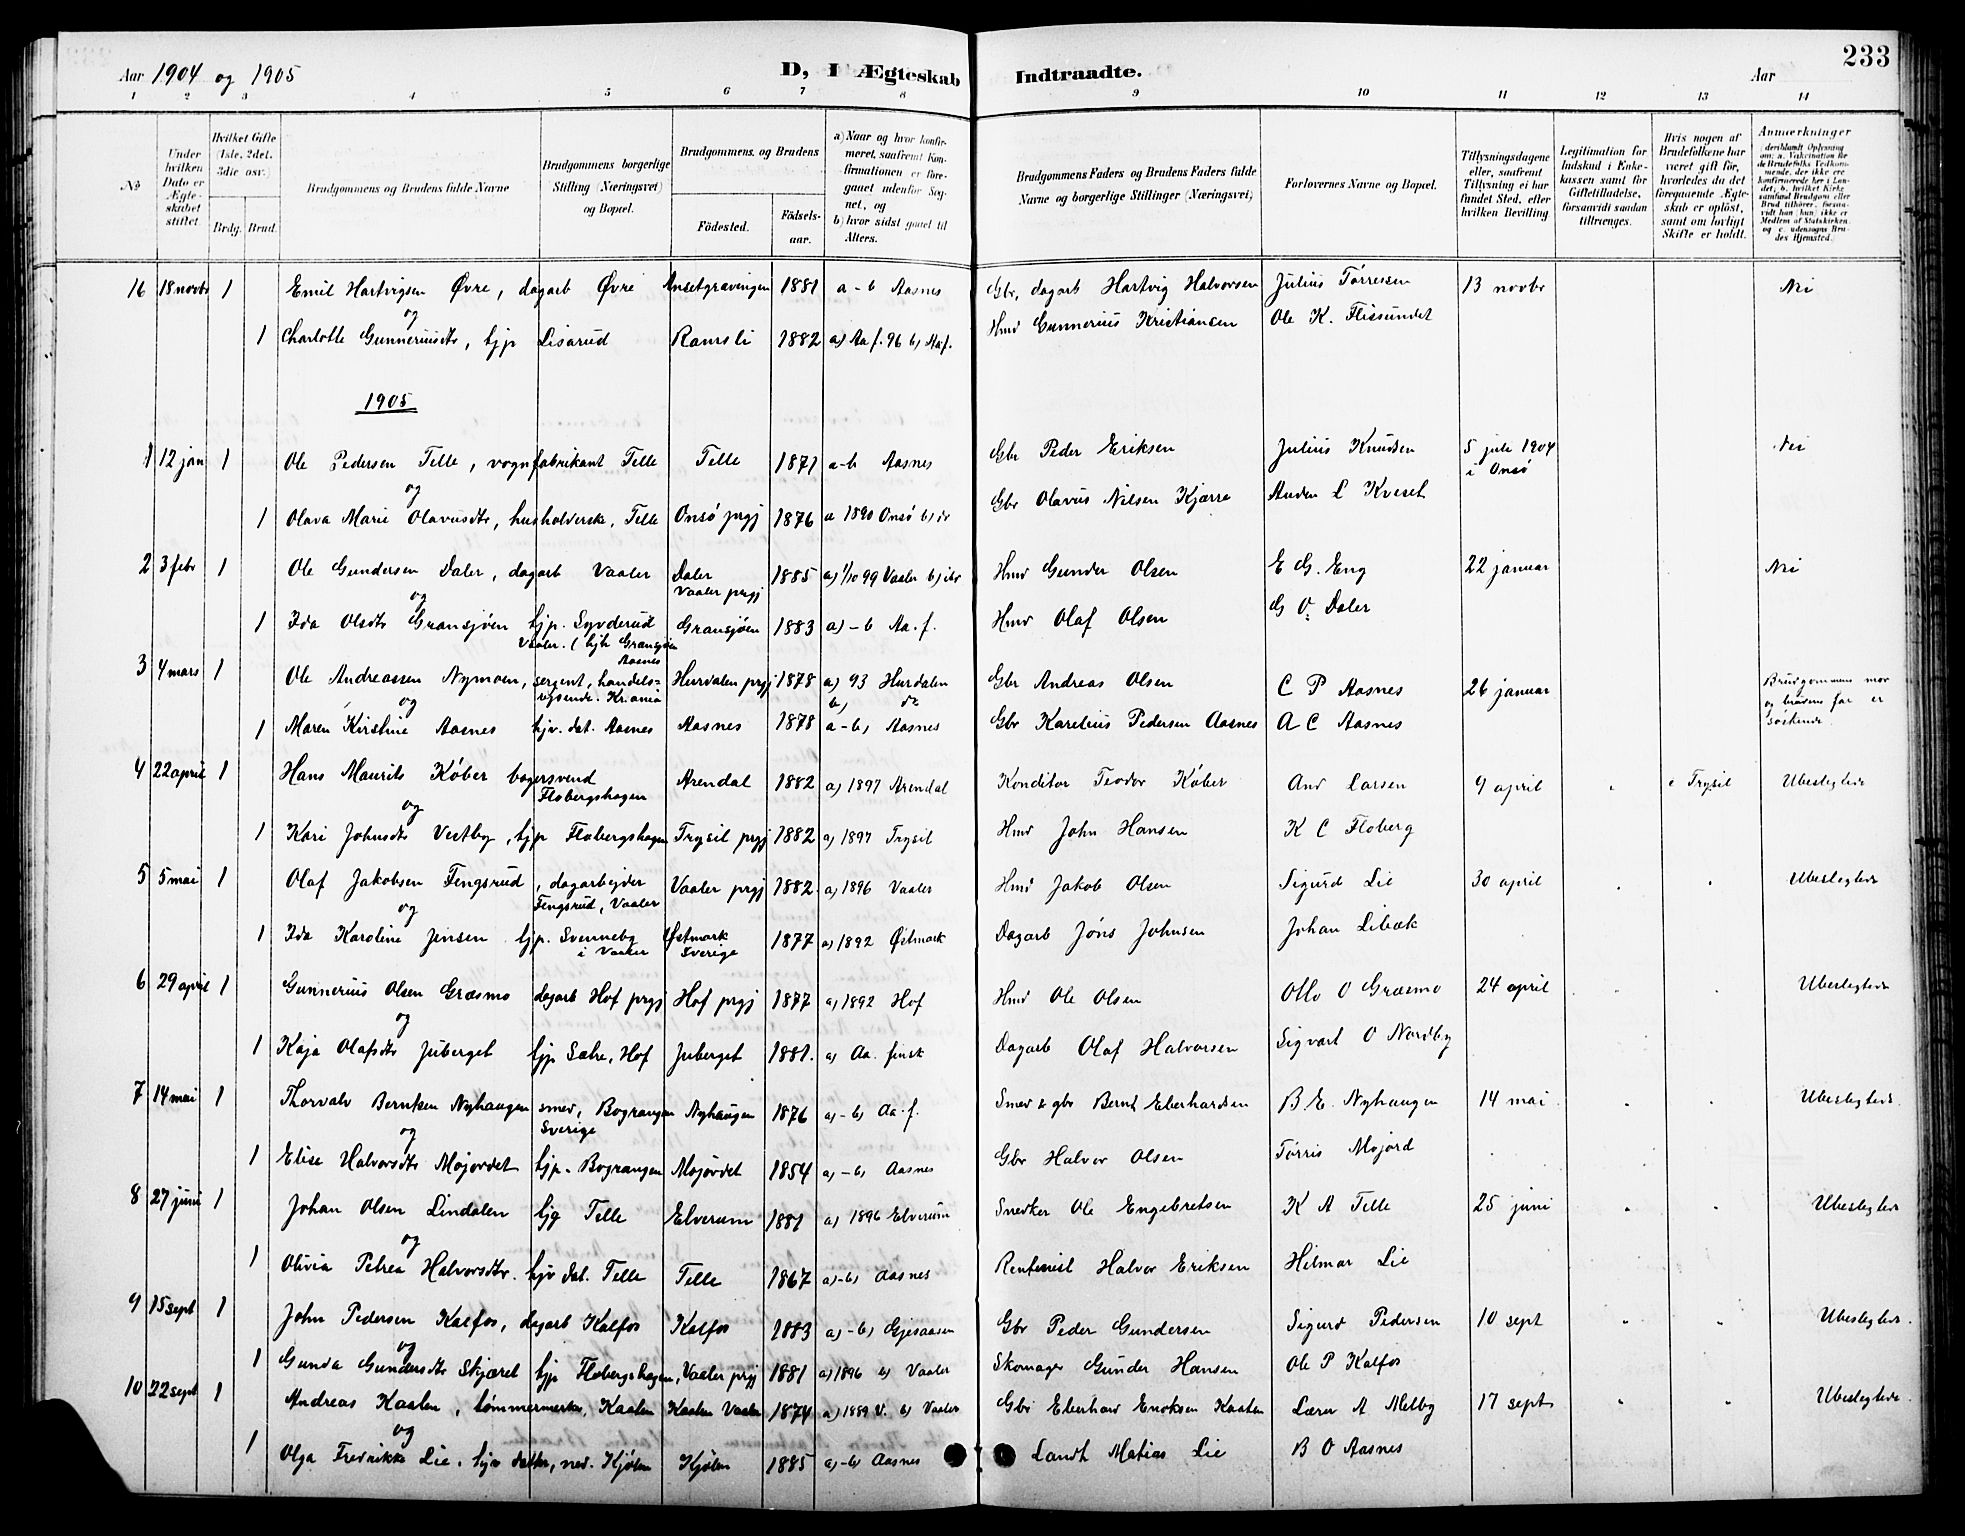 233
Aar 1904 og 1905
D, I Ægteskab Indtraadte.
Aar
1 2 3 4 5 6 7 8 9 10 11 12 13 14
№
Under hvilken Dato er Ægteskabet stiftet.
Hvilket Gifte (1ste, 2det, 3die osv.)
Brdg. Brud.
Brudgommens og Brudens fulde Navne
Brudgommens borgerlige Stilling (Næringsvei) og Bopæl.
Brudgommens og Brudens
Fødested.
Fødselsaar.
a) Naar og hvor konfirmeret, saafremt Konfirmationen er foregaaet udenfor Sognet, og b) hvor sidst gaaet til Alters.
Brudgommens Faders og Brudens Faders fulde Navne og borgerlige Stillinger (Næringsvei)
Forlovernes Navne og Bopæl.
Tillysningsdagene eller, saafremt Tillysning ei har fundet Sted, efter hvilken Bevilling
Legitimation for Indskud i Enkekassen samt for Giftetilladelse, forsaavidt saadan tiltrænges.
Hvis nogen af Brudefolkene har været gift før, hvorledes da det foregaaende Ægteskab er opløst, samt om lovligt Skifte er holdt.
Anmærkninger
16 18 novbr 1 Emil Hartvigsen Øvre, dagarb Øvre Ansetgravingen 1881 a-b Aasnes Gbr, dagarb Hartvig Halvorsen Julius Tørresen 13 novbr Nei
og
1 Charlotte Gunneriusdtr, tjp Lisarud Ramsli 1882 a) Aa f. 96 b) Aaf. Hmd Gunnerius Kristiansen Ole K. Flissundet
1905
1 12 jan 1 Ole Pedersen Telle, vognfabrikant Telle Telle 1871 a-b Aasnes Gbr Peder Eriksen Julius Knudsen 5 juli 1904 i Onsø Nei
og
1 Olava Marie Olavusdtr, husholderske, Telle Onsø prgj 1876 a 1890 Onsø b) do Gbr Olavus Nilsen Kjærre Anden L Kveset
2 3 febr 1 Ole Gundersen Daler, dagarb Vaaler Daler Vaaler prgj 1885 a) 1/10 99 Vaaler b) Hmd Gunder Olsen E G. Eng 22 januar Nei
og
1 Ida Olsdtr Gransjøen tjp. Syvderud Vaaler. (hjh Gransjøen Aasnes Gransjøen 1883 a) - b Aa. f. Hmd Olaf Olsen G O. Daler
3 4 mars 1 Ole Andreassen Nymoen, sergent, handelsreisende. Kr.ania Hurdalen prgj 1878 a) 93 Hurdalen b) do Gbr Andreas Olsen C P Aasnes 26 januar Brudgommens mor og brudens far er søskende.
og
1 Maren Kirstine Aasnes hjv. dat. Aasnes Aasnes 1878 a-b) Aasnes Gbr Karelius Pedersen Aasnes A C Aasnes
4 22 april 1 Hans Maurits Køber bagersvend Flobergshagen Arendal 1882 a) 1897 Arendal Konditor Teodor Køber And Larsen 9 april Trysil Ubeslegtede
og
1 Kari Johnsdtr Vestby, tjp Flobergshagen Trysil prgj 1882 a) 1897 Trysil Hmd John Hansen K C Floberg
5 5 mai 1 Olaf Jakobsen Fengsrud, dagarbejder Fengsrud, Vaaler Vaaler prgj 1882 a) 1896 Vaaler Hmd Jakob Olsen Sigurd Lie 30 april Ubeslegtede
og
1 Ida Karoline Jensen tjp. Svenneby i Vaaler Østmark Sverige 1877 a) 1892 Østmark Dagarb Jøns Johnsen Johan Libæk
6 29 april 1 Gunnerius Olsen Græsmo dagarb Hof prgj Hof prgj 1877 a) 1892 Hof Hmd Ole Olsen Otto O Græsmo 24 april Ubeslegtede
og
1 Kaja Olafsdtr Juberget tjp Sætre, Hof Juberget 1881. a) Aa. finsk Dagarb Olaf Halvorsen Sigvart O Nordby
7 14 mai 1 Thorvald Berntsen Nyhaugen smed, Bograngen Sverige Nyhaugen 1876 a)-b) Aa. f. Smed & gbr Bernt Eberhardsen B. E. Nyhaugen 14 mai Ubeslegtede.
og
1 Elise Halvorsdtr Mojordet tjp. Bograngen Mojordet 1854 a)-b) Aasnes Gbr Halvor Olsen Tørris Mojord
8 27 juni 1 Johan Olsen Lindalen tjg Telle Elverum 1881 a) 1896 Elverum Snedker Ole Engebretsen K A Telle 25 juni Ubeslegtede
og
1 Olivia Petrea Halvorsdtr. hjv dat. Telle Telle 1867 a)-b) Aasnes Rentenist Halvor Eriksen Hilmar Lie
9 15 sept 1 John Pedersen Kalfos, dagarb Kalfos Kalfos 1883 a)-b) Gjesaasen Gbr Peder Gundersen Sigurd Pedersen 10 sept Ubeslegtede.
og
1 Gunda Gundersdtr Skjæret tjp Flobergshagen, Vaaler prgj 1881 a) 1896 b) Vaaler Skomager Gunder Hansen Ole P Kalfos
10 22 sept 1 Andreas Kaalen, tømmermerker, Kaalen Kaalen Vaaler 1874 a) 1889 V. b) Vaaler Gbr Eberhard Enoksen Kaalen Lærer A Melby 17 sept Ubeslegtede
og
1 Olga Fredrikke Lie, hjv datter, ned. Kjølen Kjølen 1885 a)-b) Aasnes Landh Matias Lie B O Aasnes